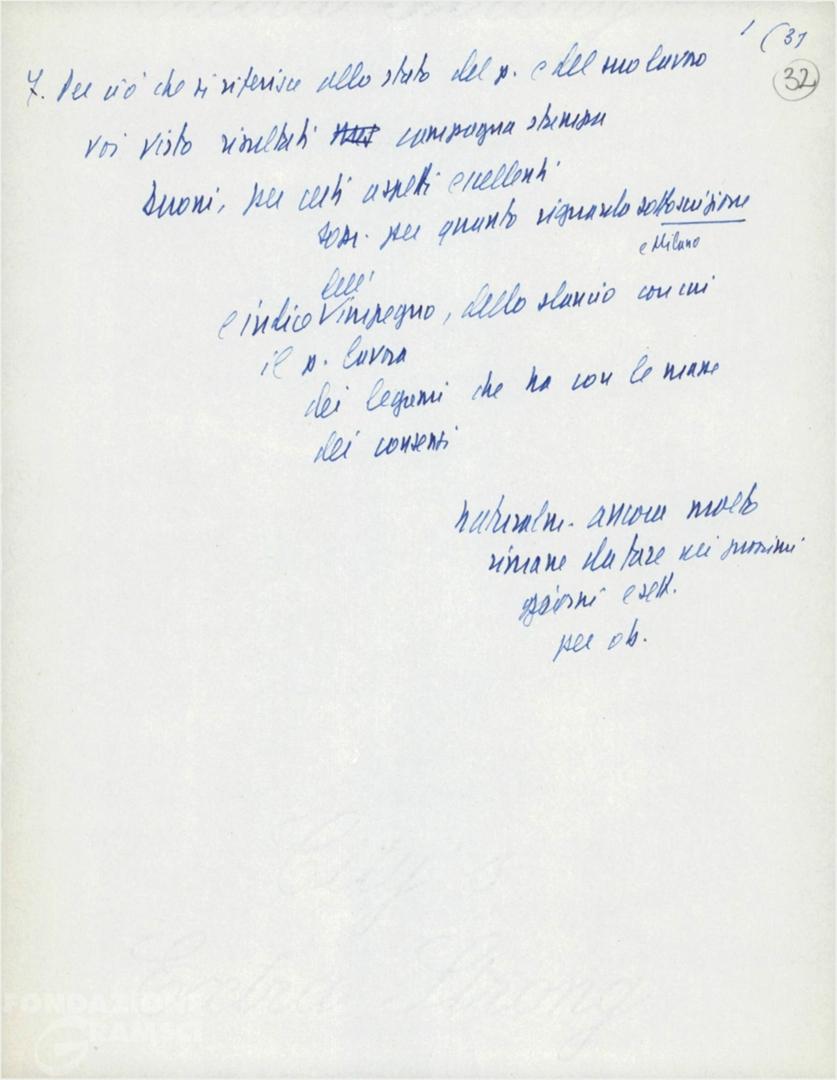 1 (31
32
7. Per ciò che si riferisce allo stato del p. e del suo lavoro
voi visto risultati campagna stampa
buoni, per certi aspetti eccellenti
sopr. per quanto riguarda sottoscrizione
e Milano
dell'
e indice impegno, dello slancio con cui
il p. lavora
dei legami che ha con le masse
dei consensi
naturalm. ancora molto
rimane da fare nei prossimi
giorni e sett.
per ob.
Extra Strong
FONDAZIONE
GRAMSCI